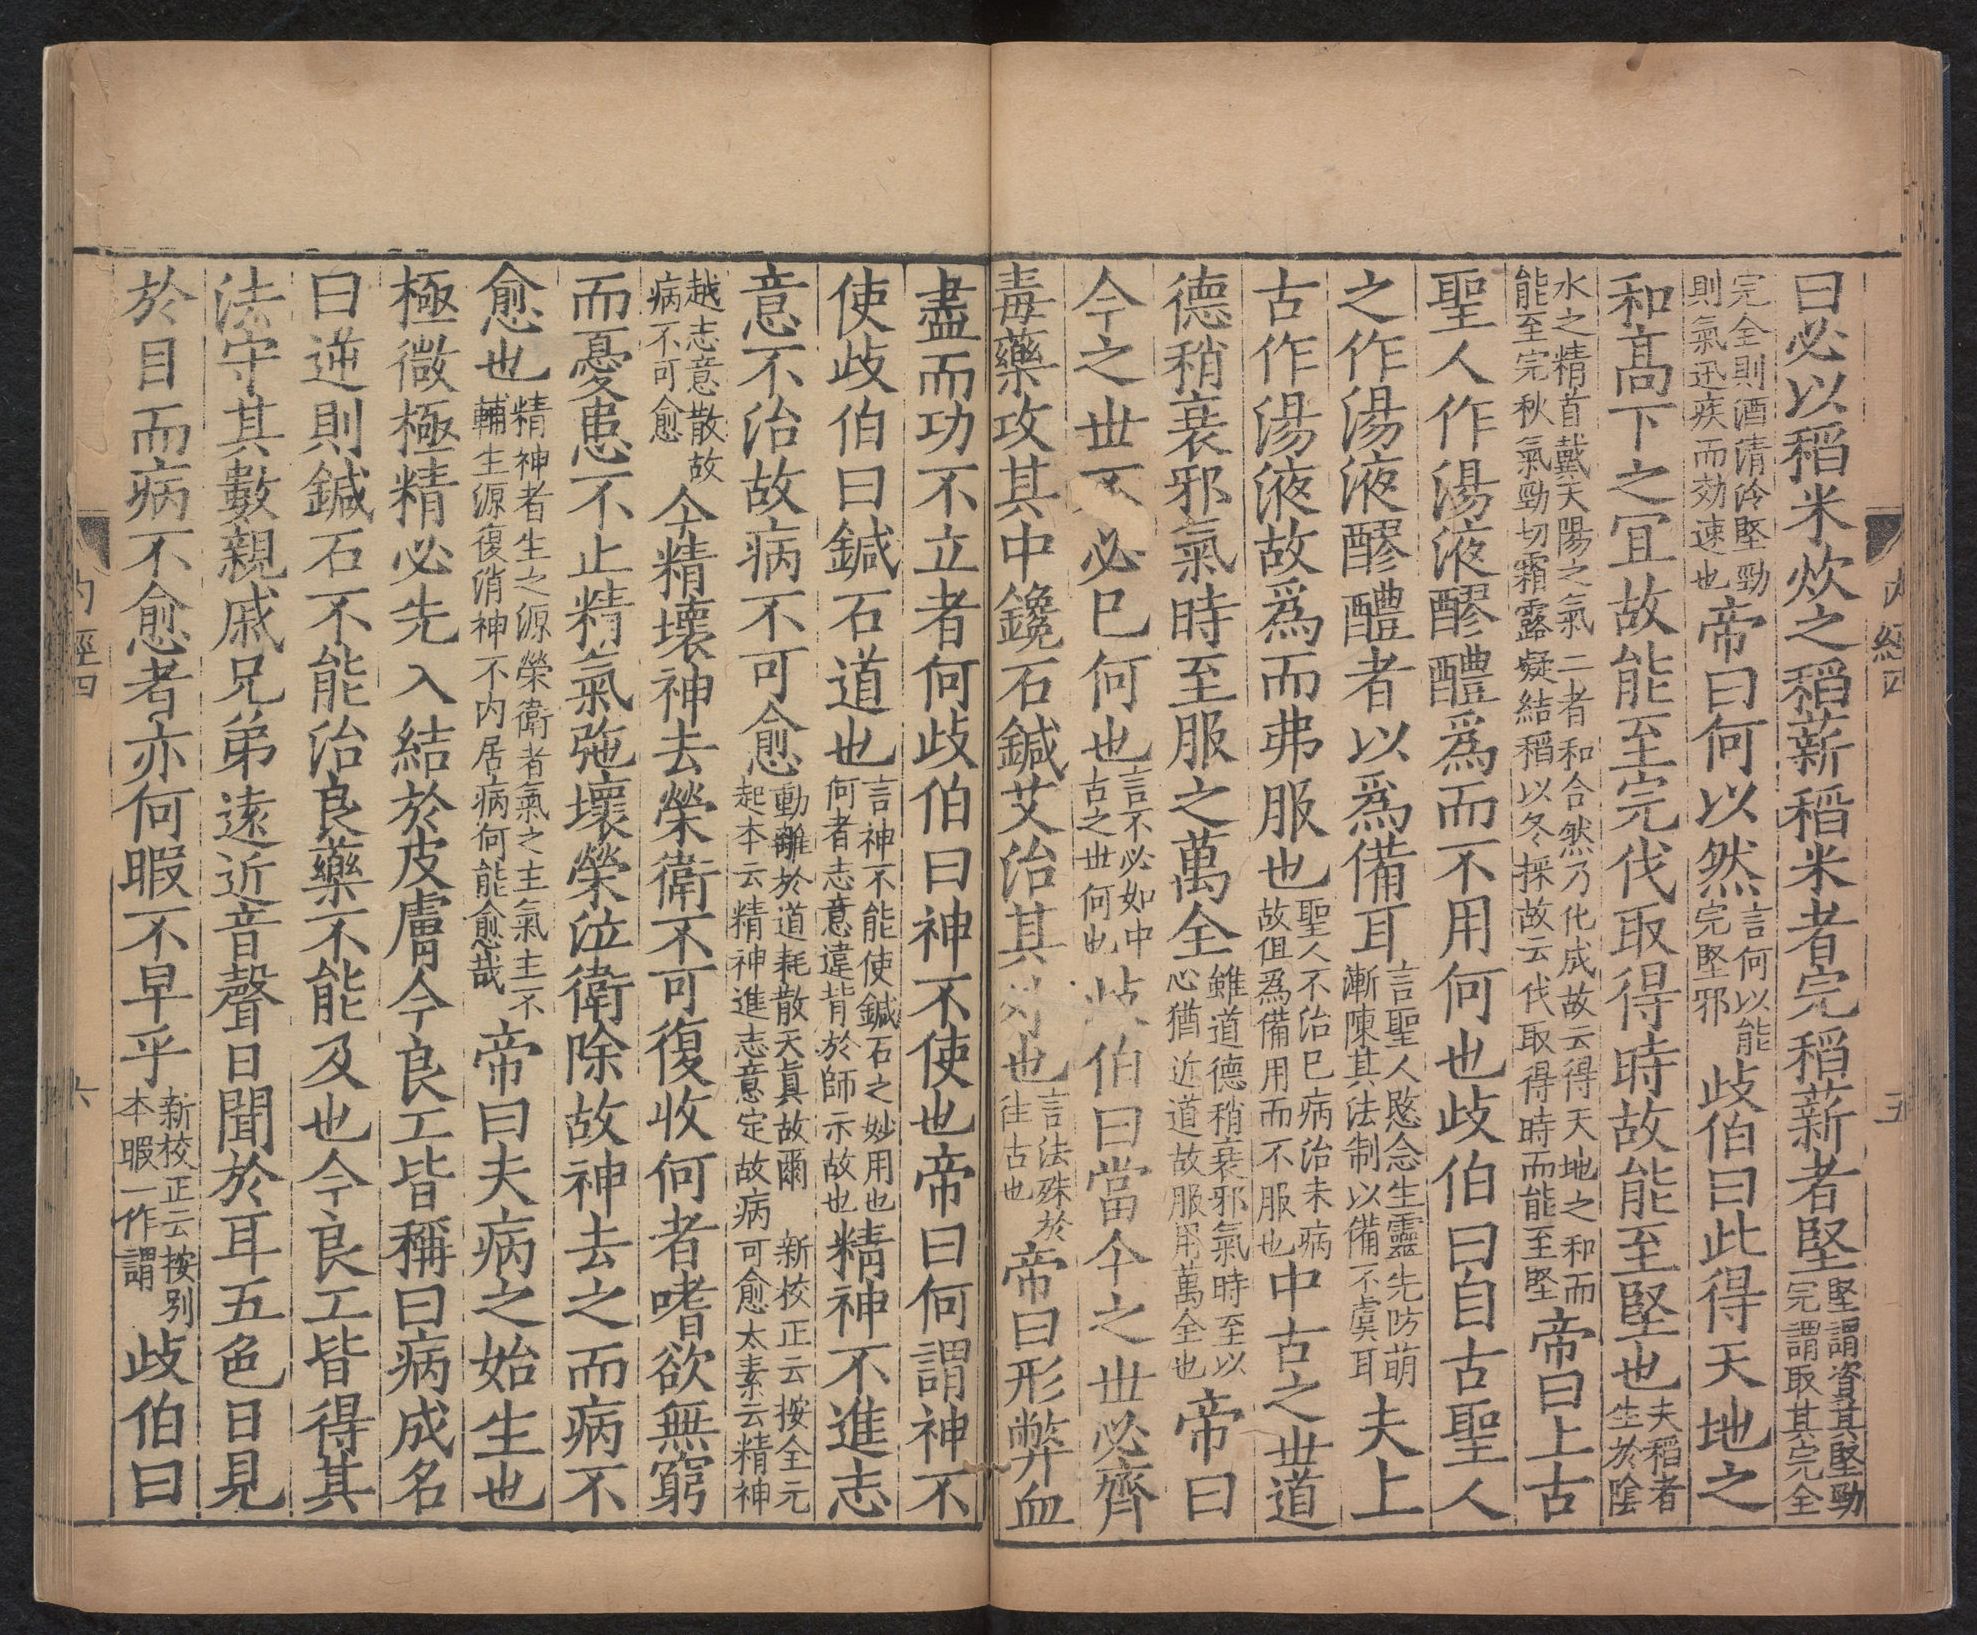 内經四
五
曰必以稻米炊之稻薪稻米者完稻薪者堅堅謂資其堅勁完謂取其完全
完全則酒清泠堅勁則氣迅疾而効速也帝曰何以然言何以能完堅邪歧伯曰此得天地之
和高下之宜故能至完伐取得時故能至堅也夫稻者生於陰
水之精首戴天陽之氣二者和合然乃化成故云得天地之和而能至完秋氣勁切霜露凝結稻以冬採故云伐取得時而能至堅帝曰上古
聖人作湯液醪醴爲而不用何也歧伯曰自古聖人
之作湯液醪醴者以爲備耳言聖人愍念生靈先防萌漸陳其法制以備不虞耳夫上
古作湯液故爲而弗服也聖人不治已病治未病故但爲備用而不服也中古之世道
德稍衰邪氣時至服之萬全雖道德稍衰邪氣時至以心猶近道故服用萬全也帝曰
今之世不必已何也言不必如中古之世何也歧伯曰當今之世必齊
毒藥攻其中鑱石鍼艾治其外也言法殊於往古也帝曰形弊血
盡而功不立者何歧伯曰神不使也帝曰何謂神不
使歧伯曰鍼石道也言神不能使鍼石之妙用也何者志意違背於師示故也精神不進志
意不治故病不可愈動離於道耗散天眞故爾 新校正云按全元起本云精神進志意定故病可愈太素云精神
越志意散故病不可愈今精壞神去榮衛不可復收何者嗜欲無窮
而憂患不止精氣弛壞榮泣衛除故神去之而病不
愈也精神者生之源榮衛者氣之主氣主不輔生源復消神不内居病何能愈哉帝曰夫病之始生也
極微極精必先入結於皮膚今良工皆稱曰病成名
曰逆則鍼石不能治良藥不能及也今良工皆得其
法守其數親戚兄弟遠近音聲日聞於耳五色日見
於目而病不愈者亦何暇不早乎新校正云按别本暇一作謂歧伯曰
内經四
六